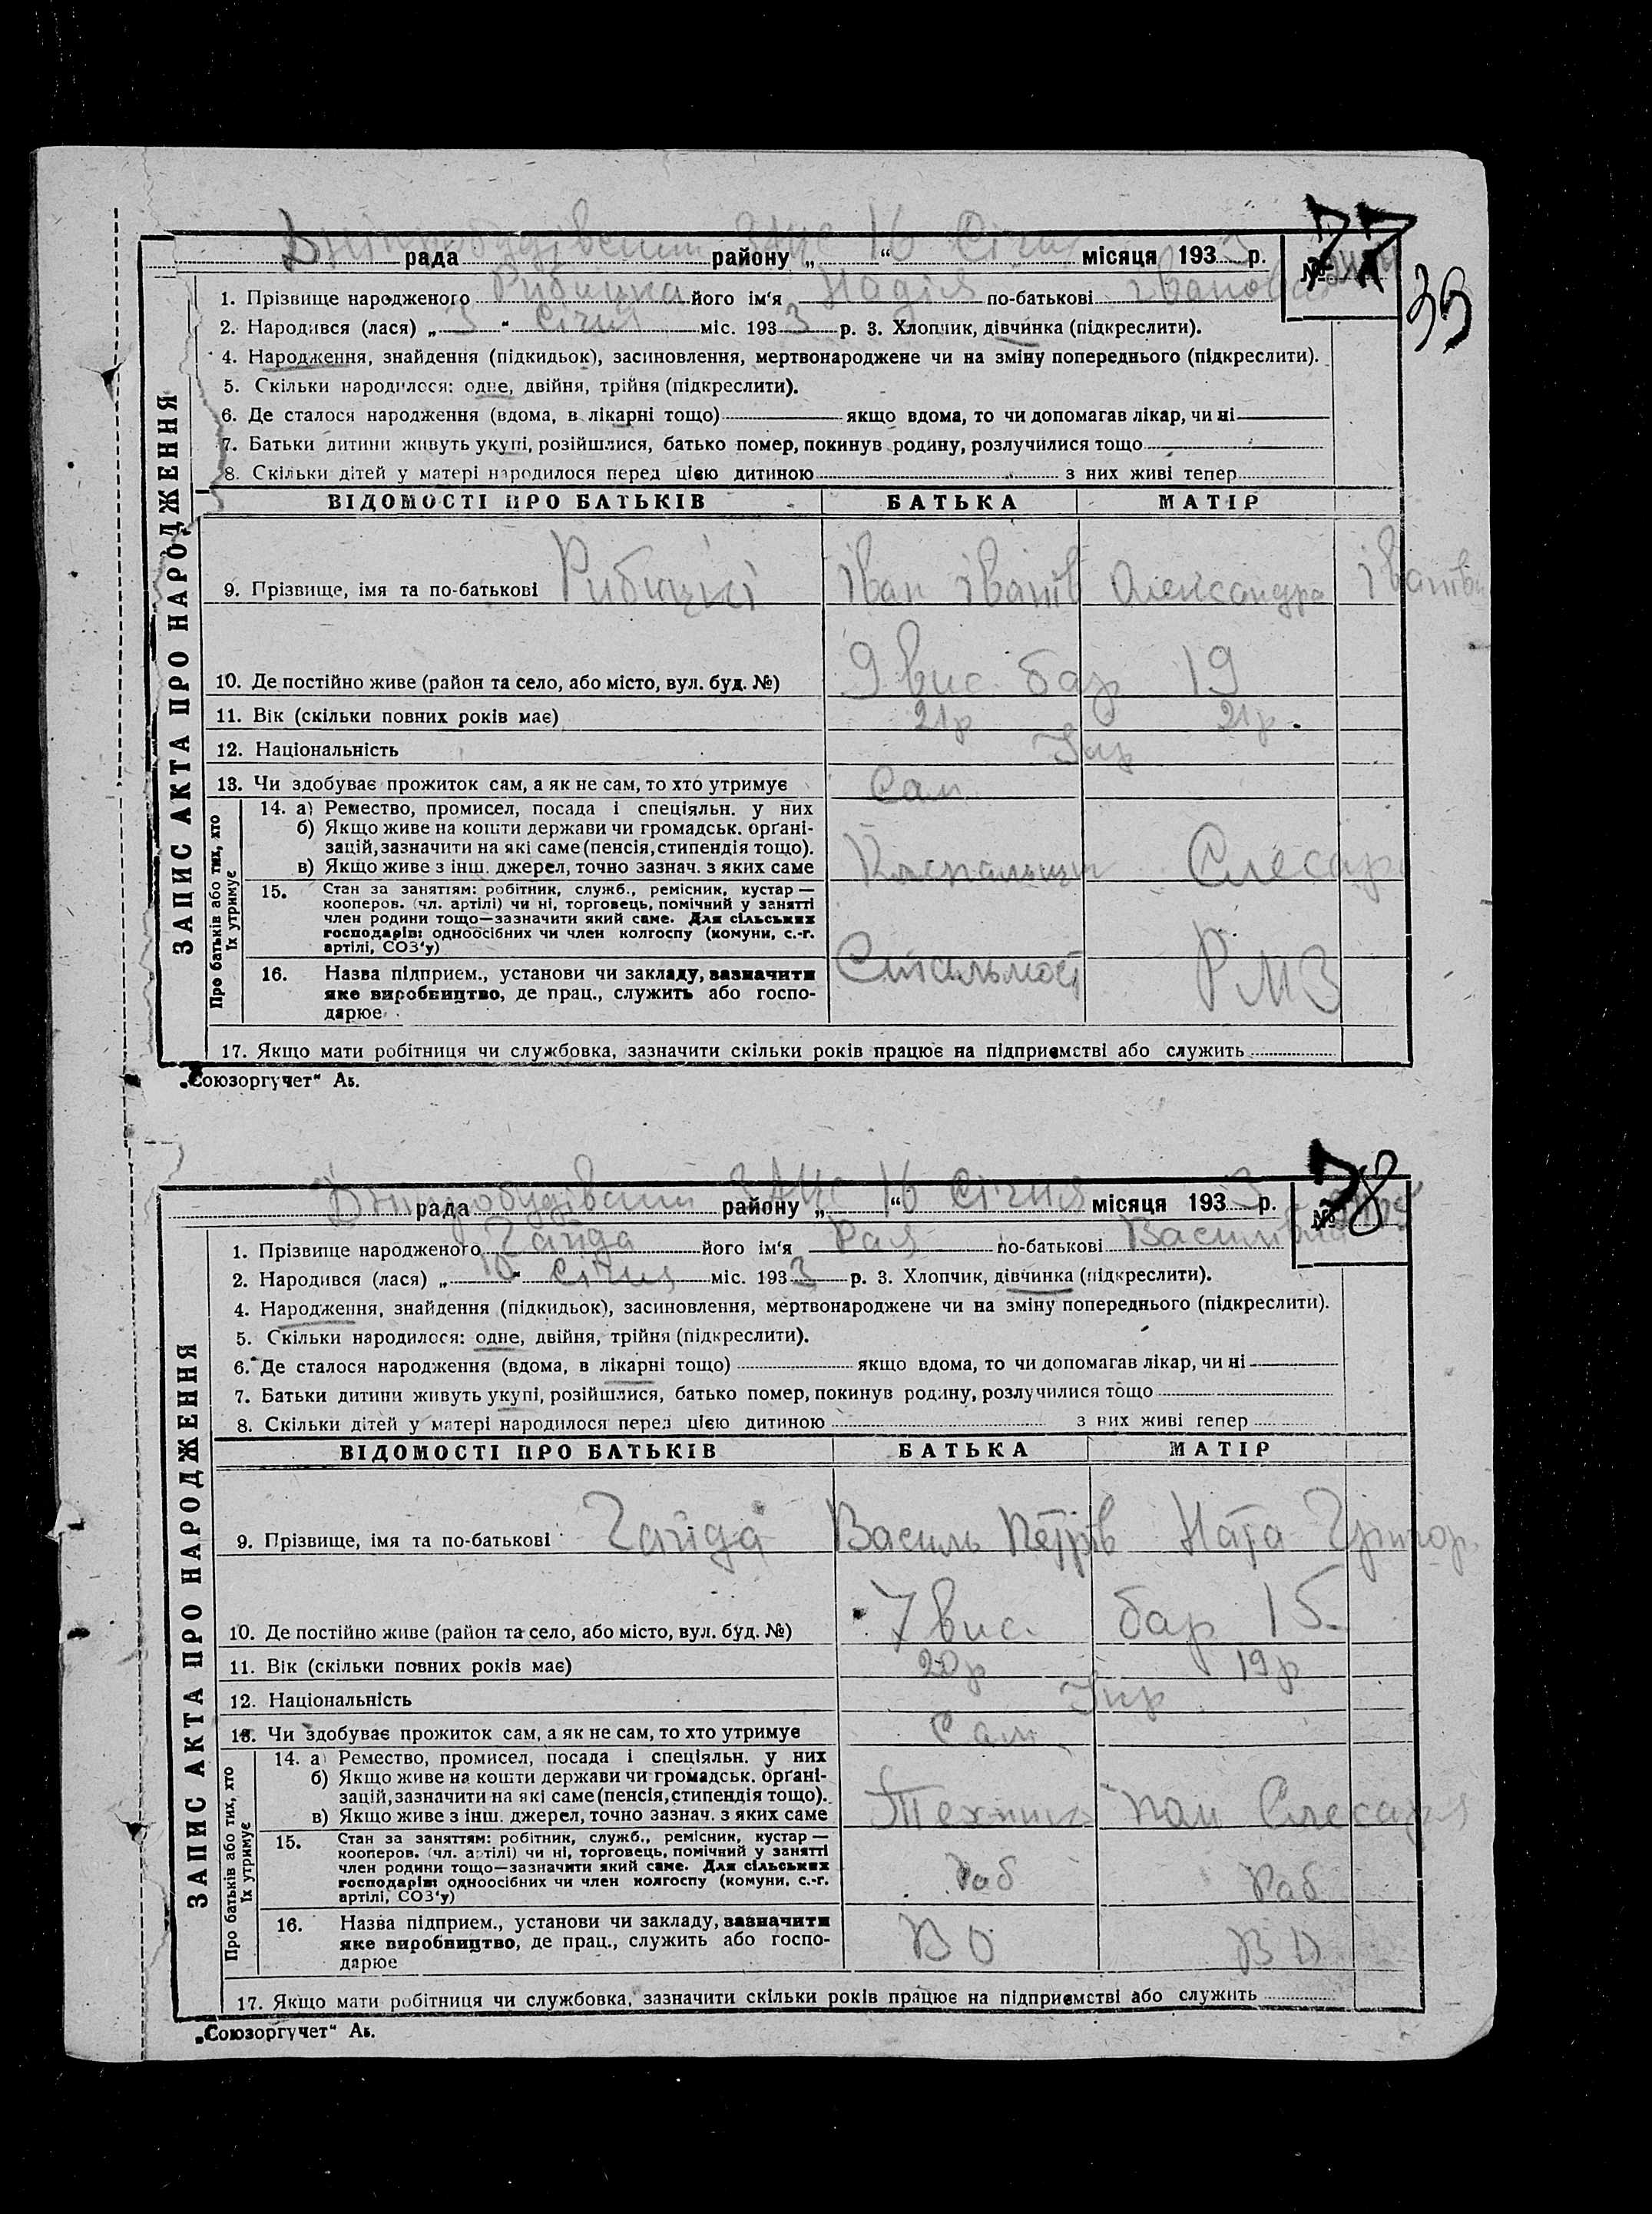 Дніпробудівський ЗАЦС 16 Січня
рада району „ “ місяця 1933 р. № 77
39
1. Прізвище народженого Рибицка його ім'я Надія по-батькові Іванов
2. Народився (лася) „ 3 “ Січня міс. 1933 р. 3. Хлопчик, дівчинка (підкреслити).
4. Народження, знайдення (підкидьок), засиновлення, мертвонароджене чи на зміну попереднього (підкреслити).
5. Скільки народилося: одне, двійня, трійня (підкреслити).
6. Де сталося народження (вдома, в лікарні тощо) якщо вдома, то чи допомагав лікар, чи ні
7. Батьки дитини живуть укупі, розійшлися, батько помер, покинув родину, розлучилися тощо
8. Скільки дітей у матері народилося перед цією дитиною з них живі тепер
ЗАПИС АКТА ПРО НАРОДЖЕННЯ
ВІДОМОСТІ ПРО БАТЬКІВ БАТЬКА МАТІР
9. Прізвище, імя та по-батькові Рибицкі Іван Іванів Олександра Іванівн
10. Де постійно живе (район та село, або місто, вул. буд. №) 9 вис. бар 19
11. Вік (скільки повних років має) 21р 21р.
12. Національність Укр
13. Чи здобуває прожиток сам, а як не сам, то хто утримує Сам
Про батьків або тих, хто їх утримує
14. а) Ремество, промисел, посада і спеціяльн. у них
б) Якщо живе на кошти держави чи громадськ. орґані-
зацій, зазначити на які саме (пенсія, стипендія тощо).
в) Якщо живе з інш. джерел, точно зазнач. з яких саме Слесар
15. Стан за заняттям: робітник, служб., ремісник, кустар —
кооперов. (чл. артілі) чи ні, торговець, помічний у занятті
член родини тощо—зазначити який саме. Для сільських
господарів: одноосібних чи член колгоспу (комуни, с.-г.
артілі, СОЗ'у)
16. Назва підприєм., установи чи закладу, зазначити
яке виробництво, де прац., служить або госпо-
дарює Стальмост РМЗ
17. Якщо мати робітниця чи службовка, зазначити скільки років працює на підприємстві або служить
„Союзоргучет“ Аз.
Дніпробудівський ЗАЦС 16 Січня
рада району „ “ місяця 1933 р. № 78
1. Прізвище народженого Гайда його ім'я Рая по-батькові Василівна
2. Народився (лася) „ 10 “ Січня міс. 1933 р. 3. Хлопчик, дівчинка (підкреслити).
4. Народження, знайдення (підкидьок), засиновлення, мертвонароджене чи на зміну попереднього (підкреслити).
5. Скільки народилося: одне, двійня, трійня (підкреслити).
6. Де сталося народження (вдома, в лікарні тощо) якщо вдома, то чи допомагав лікар, чи ні
7. Батьки дитини живуть укупі, розійшлися, батько помер, покинув родину, розлучилися тощо
8. Скільки дітей у матері народилося перед цією дитиною з них живі тепер
ЗАПИС АКТА ПРО НАРОДЖЕННЯ
ВІДОМОСТІ ПРО БАТЬКІВ БАТЬКА МАТІР
9. Прізвище, імя та по-батькові Гайда Василь Петрів Ната Григор
10. Де постійно живе (район та село, або місто, вул. буд. №) 7 вис. бар 15
11. Вік (скільки повних років має) 20р 19р
12. Національність Укр
13. Чи здобуває прожиток сам, а як не сам, то хто утримує Сам
Про батьків або тих, хто їх утримує
14. а) Ремество, промисел, посада і спеціяльн. у них
б) Якщо живе на кошти держави чи громадськ. орґані-
зацій, зазначити на які саме (пенсія, стипендія тощо).
в) Якщо живе з інш. джерел, точно зазнач. з яких саме Технік пом Слесаря
15. Стан за заняттям: робітник, служб., ремісник, кустар —
кооперов. (чл. артілі) чи ні, торговець, помічний у занятті
член родини тощо—зазначити який саме. Для сільських
господарів: одноосібних чи член колгоспу (комуни, с.-г.
артілі, СОЗ'у) Раб Раб
16. Назва підприєм., установи чи закладу, зазначити
яке виробництво, де прац., служить або госпо-
дарює ВО ВО
17. Якщо мати робітниця чи службовка, зазначити скільки років працює на підприємстві або служить
„Союзоргучет“ Аз.